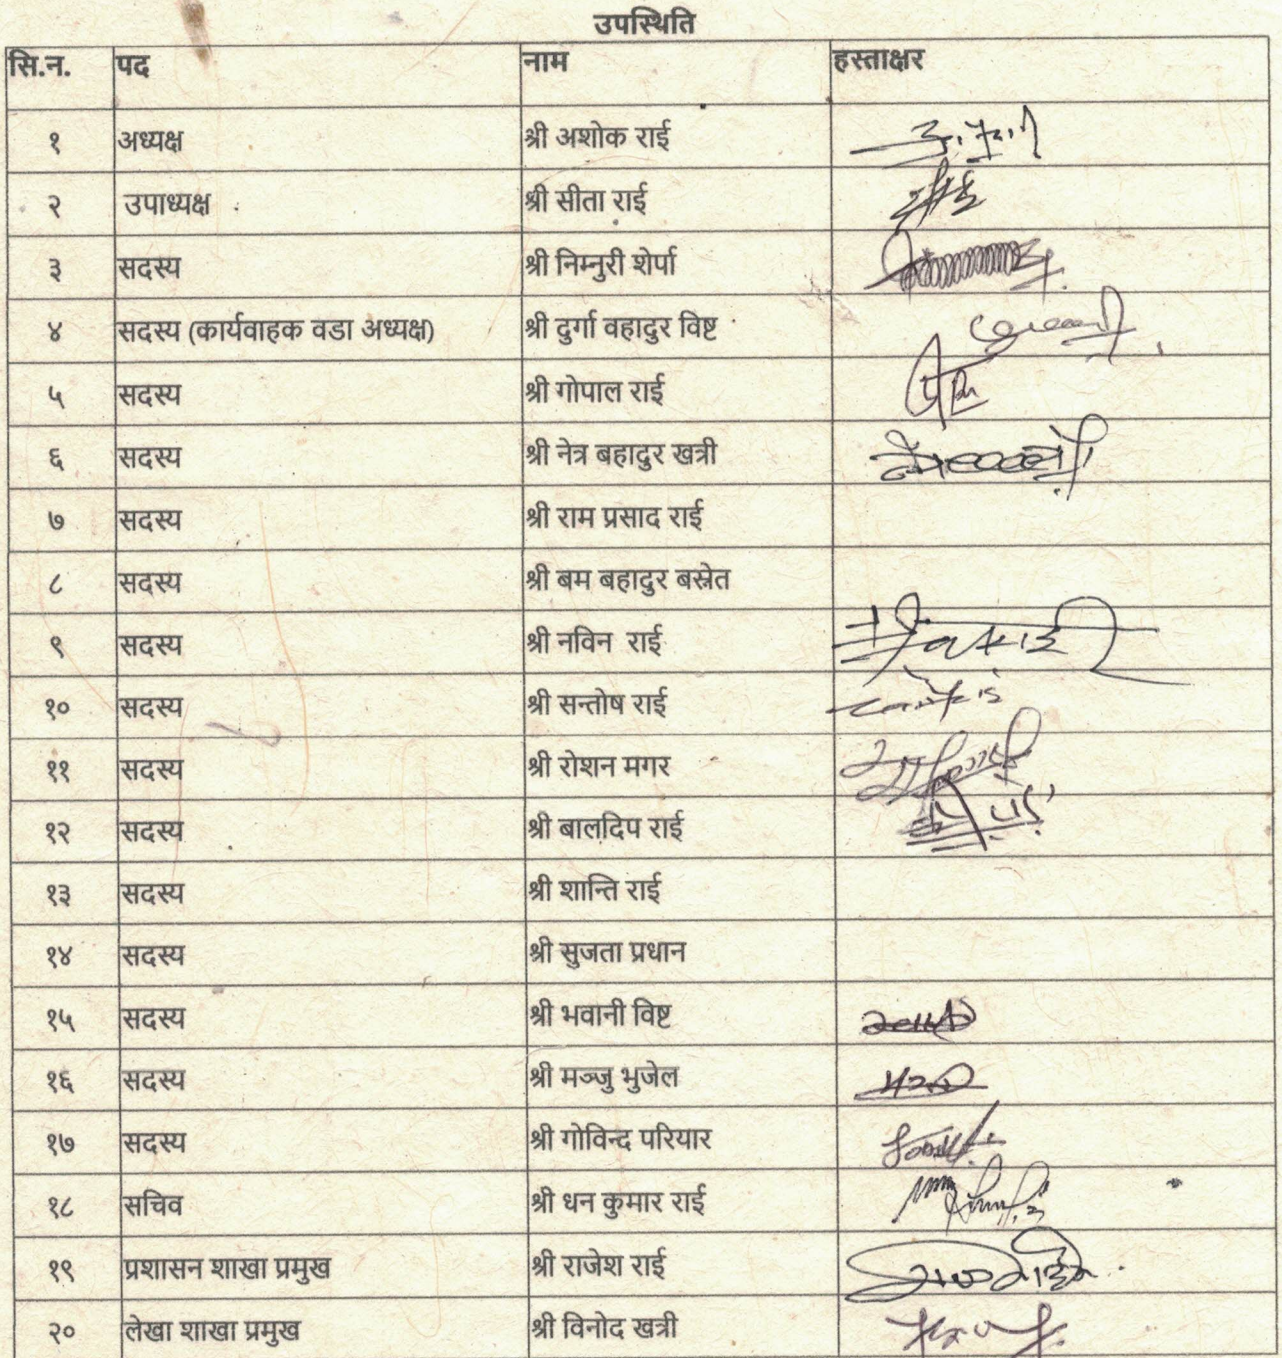 उपस्थिति
सि.न. पद नाम हस्ताक्षर
१ अध्यक्ष श्री अशोक राई
२ उपाध्यक्ष श्री सीता राई
३ सदस्य श्री निम्नुरी शेर्पा
४ सदस्य (कार्यवाहक वडा अध्यक्ष) श्री दुर्गा वहादुर विष्ट
५ सदस्य श्री गोपाल राई
६ सदस्य श्री नेत्र बहादुर खत्री
७ सदस्य श्री राम प्रसाद राई
८ सदस्य श्री बम बहादुर बस्नेत
९ सदस्य श्री नविन राई
१० सदस्य श्री सन्तोष राई
११ सदस्य श्री रोशन मगर
१२ सदस्य श्री बालदिप राई
१३ सदस्य श्री शान्ति राई
१४ सदस्य श्री सुजता प्रधान
१५ सदस्य श्री भवानी विष्ट
१६ सदस्य श्री मञ्जु भुजेल
१७ सदस्य श्री गोविन्द परियार
१८ सचिव श्री धन कुमार राई
१९ प्रशासन शाखा प्रमुख श्री राजेश राई
२० लेखा शाखा प्रमुख श्री विनोद खत्री